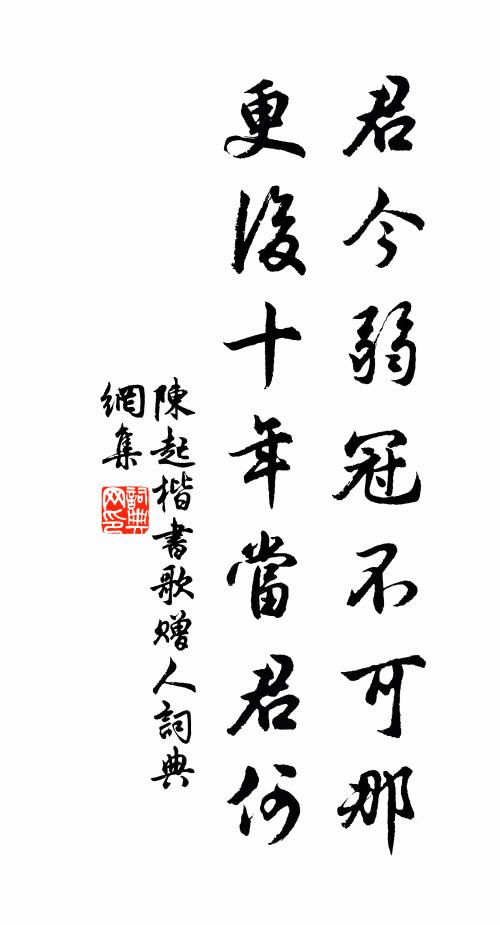 君今弱冠不可那
更後十年當君何
陳起楷書歌贈人詞典
網集
詞典
网印